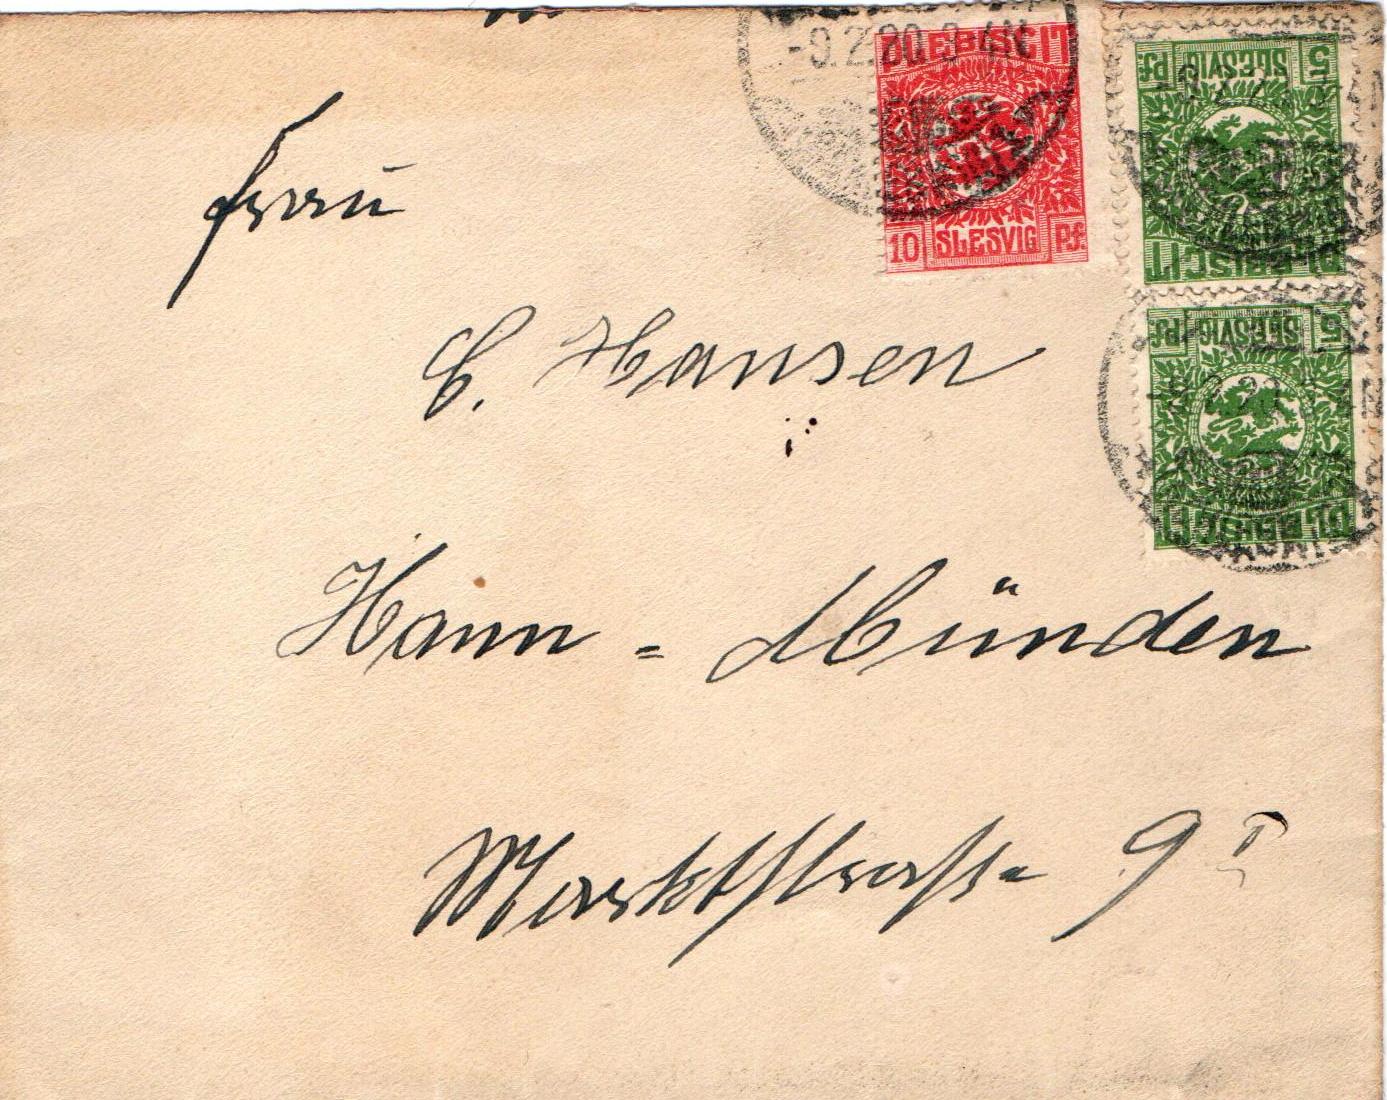 -9.2.20. 3-4N
PLEBISCIT
10 SLESVIG Pf.
5 SLESVIG Pf.
PLEBISCIT
5 SLESVIG Pf.
PLEBISCIT
Frau
C. Hansen
Hann = Münden
Marktstrasse 9 I